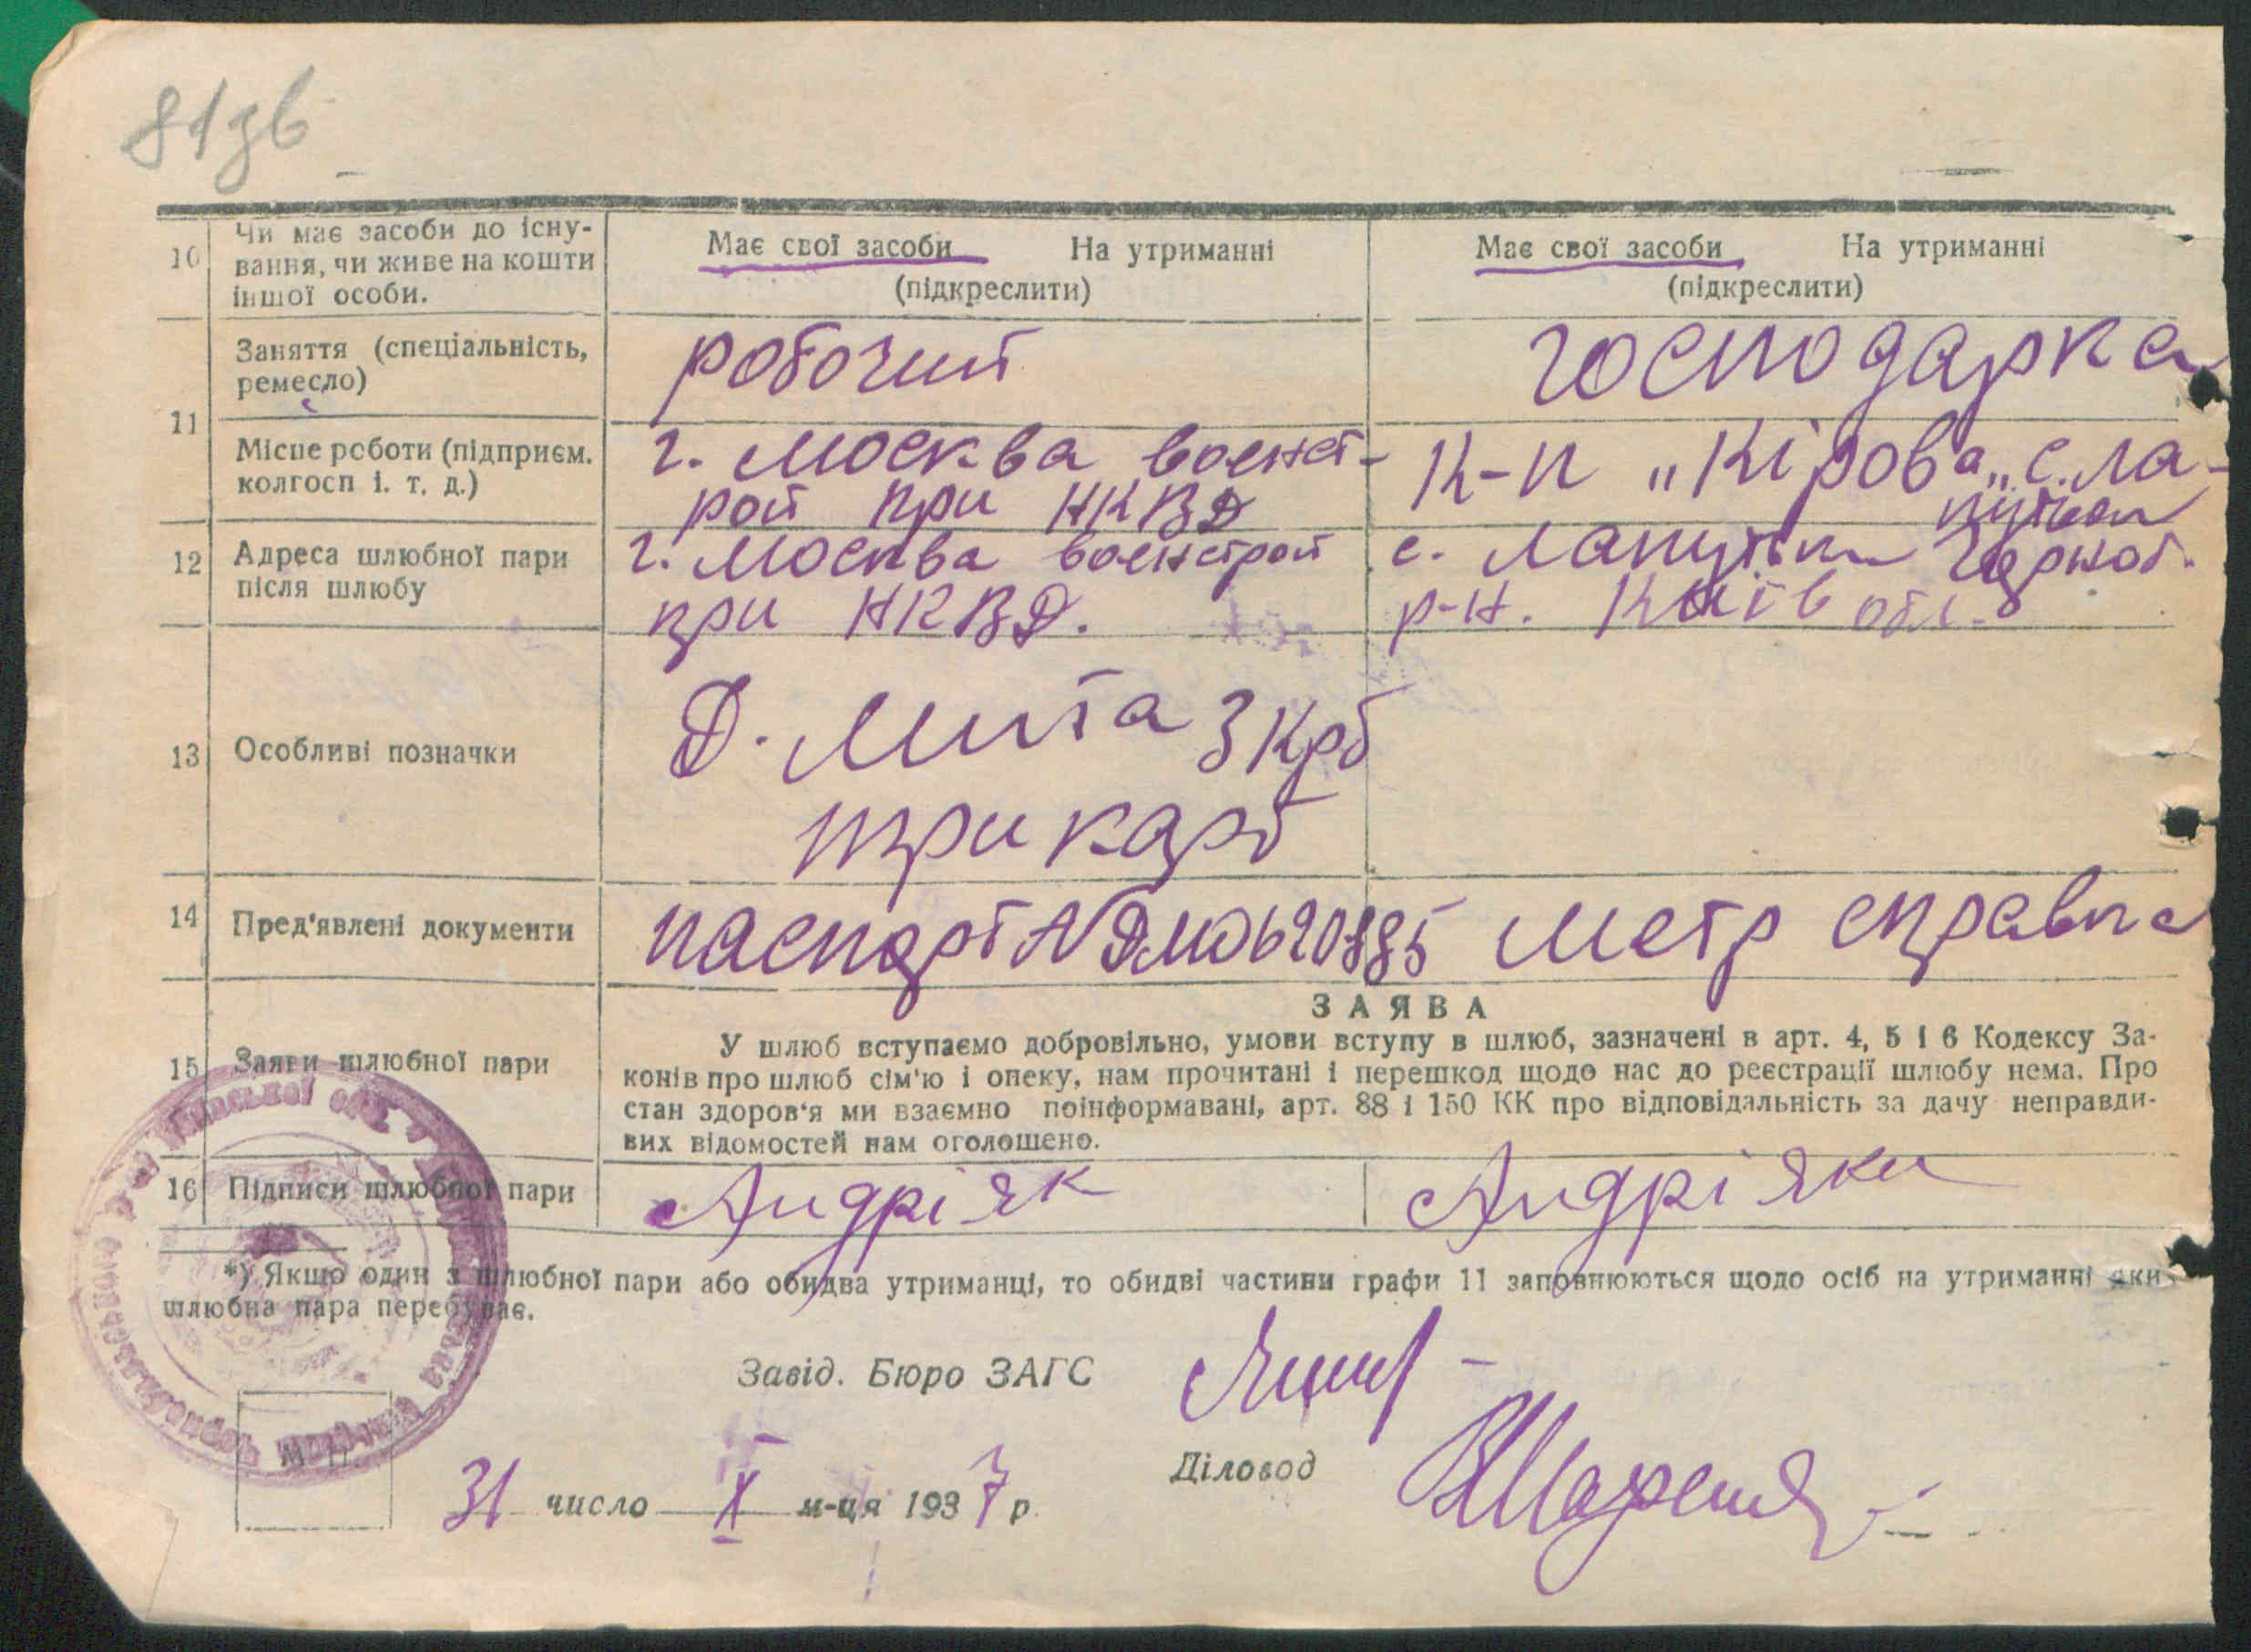 81зв
10 Чи має засоби до існу-
вання, чи живе на кошти
іншої особи.
Має свої засоби На утриманні
(підкреслити)
Має свої засоби На утриманні
(підкреслити)
11 Заняття (спеціальність,
ремесло)
робочий
господарка
Місце роботи (підприєм.
колгосп і. т. д.)
г. Москва военст-
рой при НКВД
К-п „Кірова„ с. Ла-
путьки
12 Адреса шлюбної пари
після шлюбу
г. Москва военстрой
при НКВД.
с. Лапутьки Чорноб.
р-н. Київ обл.
13 Особливі позначки
Д. Мита 3 крб
три карб
14 Пред'явлені документи
паспорт N ДМЮ620885 метр справка
15 Заяви шлюбної пари
ЗАЯВА
У шлюб вступаємо добровільно, умови вступу в шлюб, зазначені в арт. 4, 5 і 6 Кодексу За-
конів про шлюб сім'ю і опеку, нам прочитані і перешкод щодо нас до реєстрації шлюбу нема. Про
стан здоров'я ми взаємно поінформавані, арт. 88 і 150 КК про відповідальність за дачу неправди-
вих відомостей нам оголошено.
16 Підписи шлюбної пари
Андріяк
Андріяки
*) Якщо один з шлюбної пари або обидва утриманці, то обидві частини графи 11 заповнюються щодо осіб на утриманні яких
шлюбна пара перебуває.
Завід. Бюро ЗАГС
Діловод
М. П.
31 число X м-ця 1937 р.